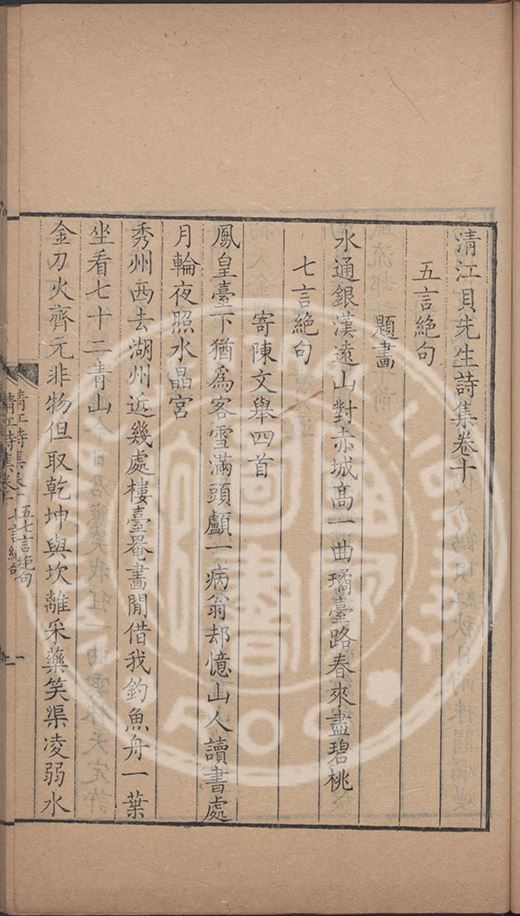 清江貝先生詩集卷十
五言絕句
題畫
水通銀漢遠山對赤城高一曲璚臺路春來盡碧桃
七言絕句
寄陳文舉四首
鳳皇臺下猶爲客雪滿頭顱一病翁却憶山人讀書處
月輪夜照水晶宮
秀州西去湖州近幾處樓臺罨畫閒借我釣魚舟一葉
坐看七十二青山
金刀火齊元非物但取乾坤與坎離采藥笑渠凌弱水